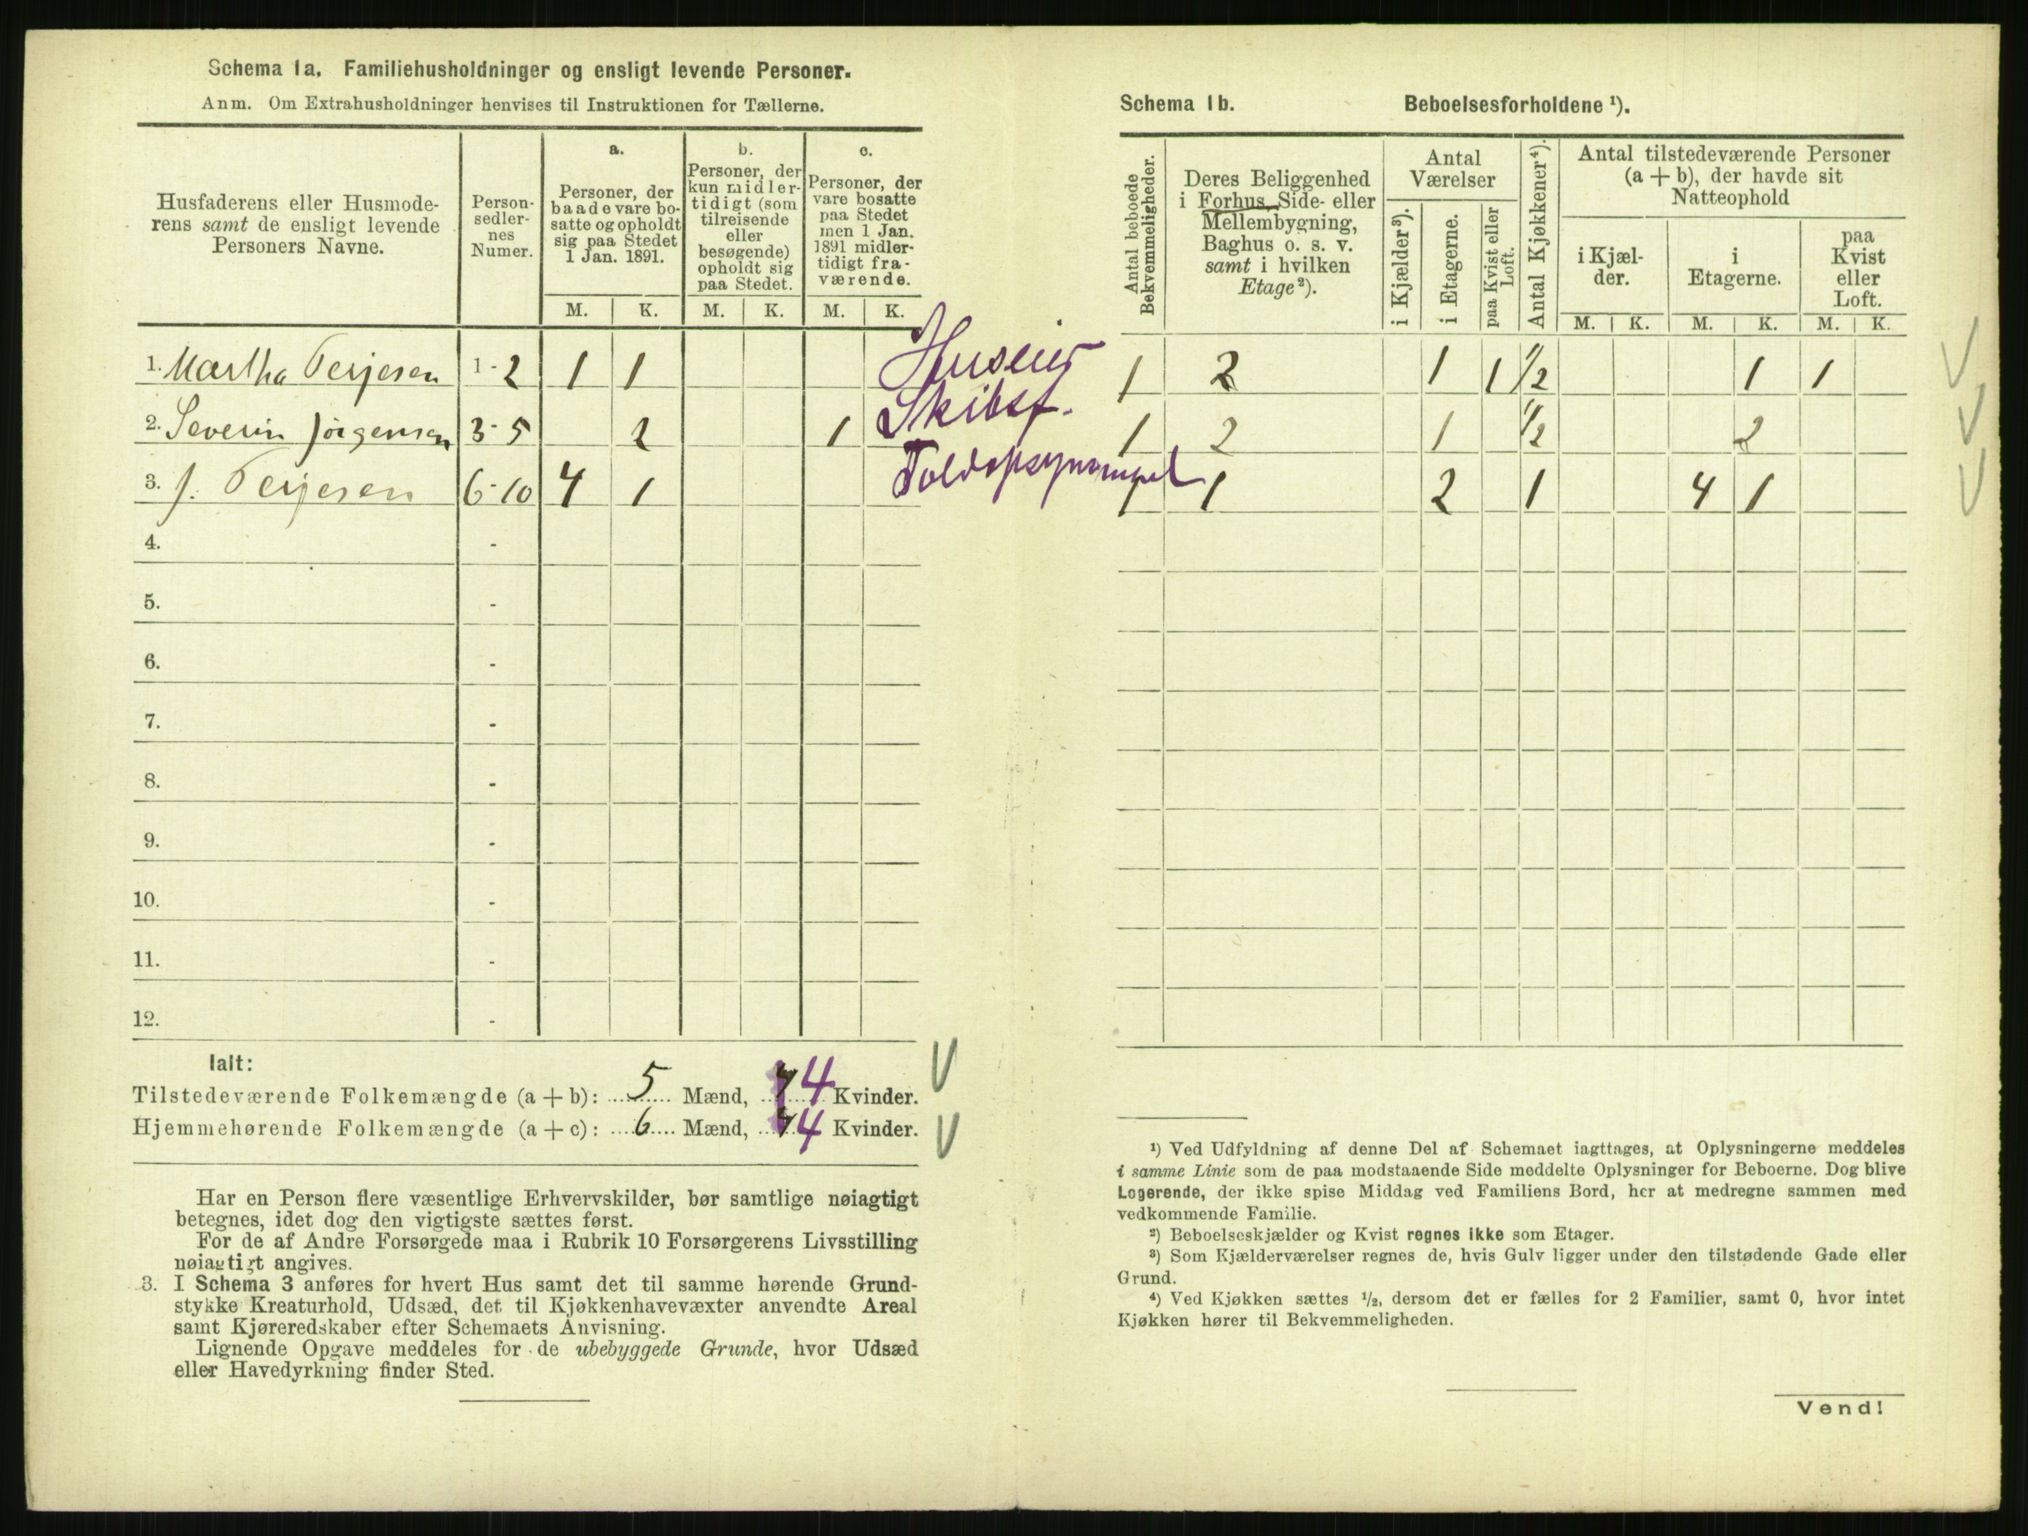 Schema 1a. Familiehusholdninger og ensligt levende Personer.
Anm. Om Extrahusholdninger henvises til Instruktionen for Tællerne.
Husfaderens eller Husmode-
rens samt de ensligt levende
Personers Navne.
Person-
sedler-
nes
Numer.
a.
Personer, der
baade vare bo-
satte og opholdt
sig paa Stedet
1 Jan. 1891.
b.
Personer, der
kun midler-
tidigt (som
tilreisende
eller
besøgende)
opholdt sig
paa Stedet.
c.
Personer, der
vare bosatte
paa Stedet
men 1 Jan.
1891 midler-
tidigt fra-
værende.
M. K. M. K. M. K.
1. Martha Terjesen 1-2 1 1 Huseier
2. Severin Jörgensen 3-5 2 1 Skibsf.
3. J. Terjesen 6-10 4 1
4. -
5. -
6. -
7. -
8. -
9. -
10. -
11. -
12. -
Ialt:
Tilstedeværende Folkemængde (a + b): 5 Mænd, 4 Kvinder.
Hjemmehørende Folkemængde (a + c): 6 Mænd, 4 Kvinder.
Har en Person flere væsentlige Erhvervskilder, bør samtlige nøiagtigt
betegnes, idet dog den vigtigste sættes først.
For de af Andre Forsørgede maa i Rubrik 10 Forsørgerens Livsstilling
nøiagtigt angives.
3. I Schema 3 anføres for hvert Hus samt det til samme hørende Grund-
stykke Kreaturhold, Udsæd, det til Kjøkkenhavevæxter anvendte Areal
samt Kjøreredskaber efter Schemaets Anvisning.
Lignende Opgave meddeles for de ubebyggede Grunde, hvor Udsæd
eller Havedyrkning finder Sted.
Schema 1b. Beboelsesforholdene ¹).
Antal beboede
Bekvemmeligheder.
Deres Beliggenhed
i Forhus, Side- eller
Mellembygning,
Baghus o. s. v.
samt i hvilken
Etage²).
Antal
Værelser
i Kjælder³).
i Etagerne.
paa Kvist eller
Loft.
Antal Kjøkkener⁴).
Antal tilstedeværende Personer
(a + b), der havde sit
Natteophold
i Kjæl-
der.
i
Etagerne.
paa
Kvist
eller
Loft.
M. K. M. K. M. K.
1 2 1 1 1/2 1 1
1 2 1 1/2 2
1 1 2 1 4 1
¹) Ved Udfyldning af denne Del af Schemaet iagttages, at Oplysningerne meddeles
i samme Linie som de paa modstaaende Side meddelte Oplysninger for Beboerne. Dog blive
Logerende, der ikke spise Middag ved Familiens Bord, her at medregne sammen med
vedkommende Familie.
²) Beboelseskjælder og Kvist regnes ikke som Etager.
³) Som Kjælderværelser regnes de, hvis Gulv ligger under den tilstødende Gade eller
Grund.
⁴) Ved Kjøkken sættes ½, dersom det er fælles for 2 Familier, samt 0, hvor intet
Kjøkken hører til Bekvemmeligheden.
Vend!